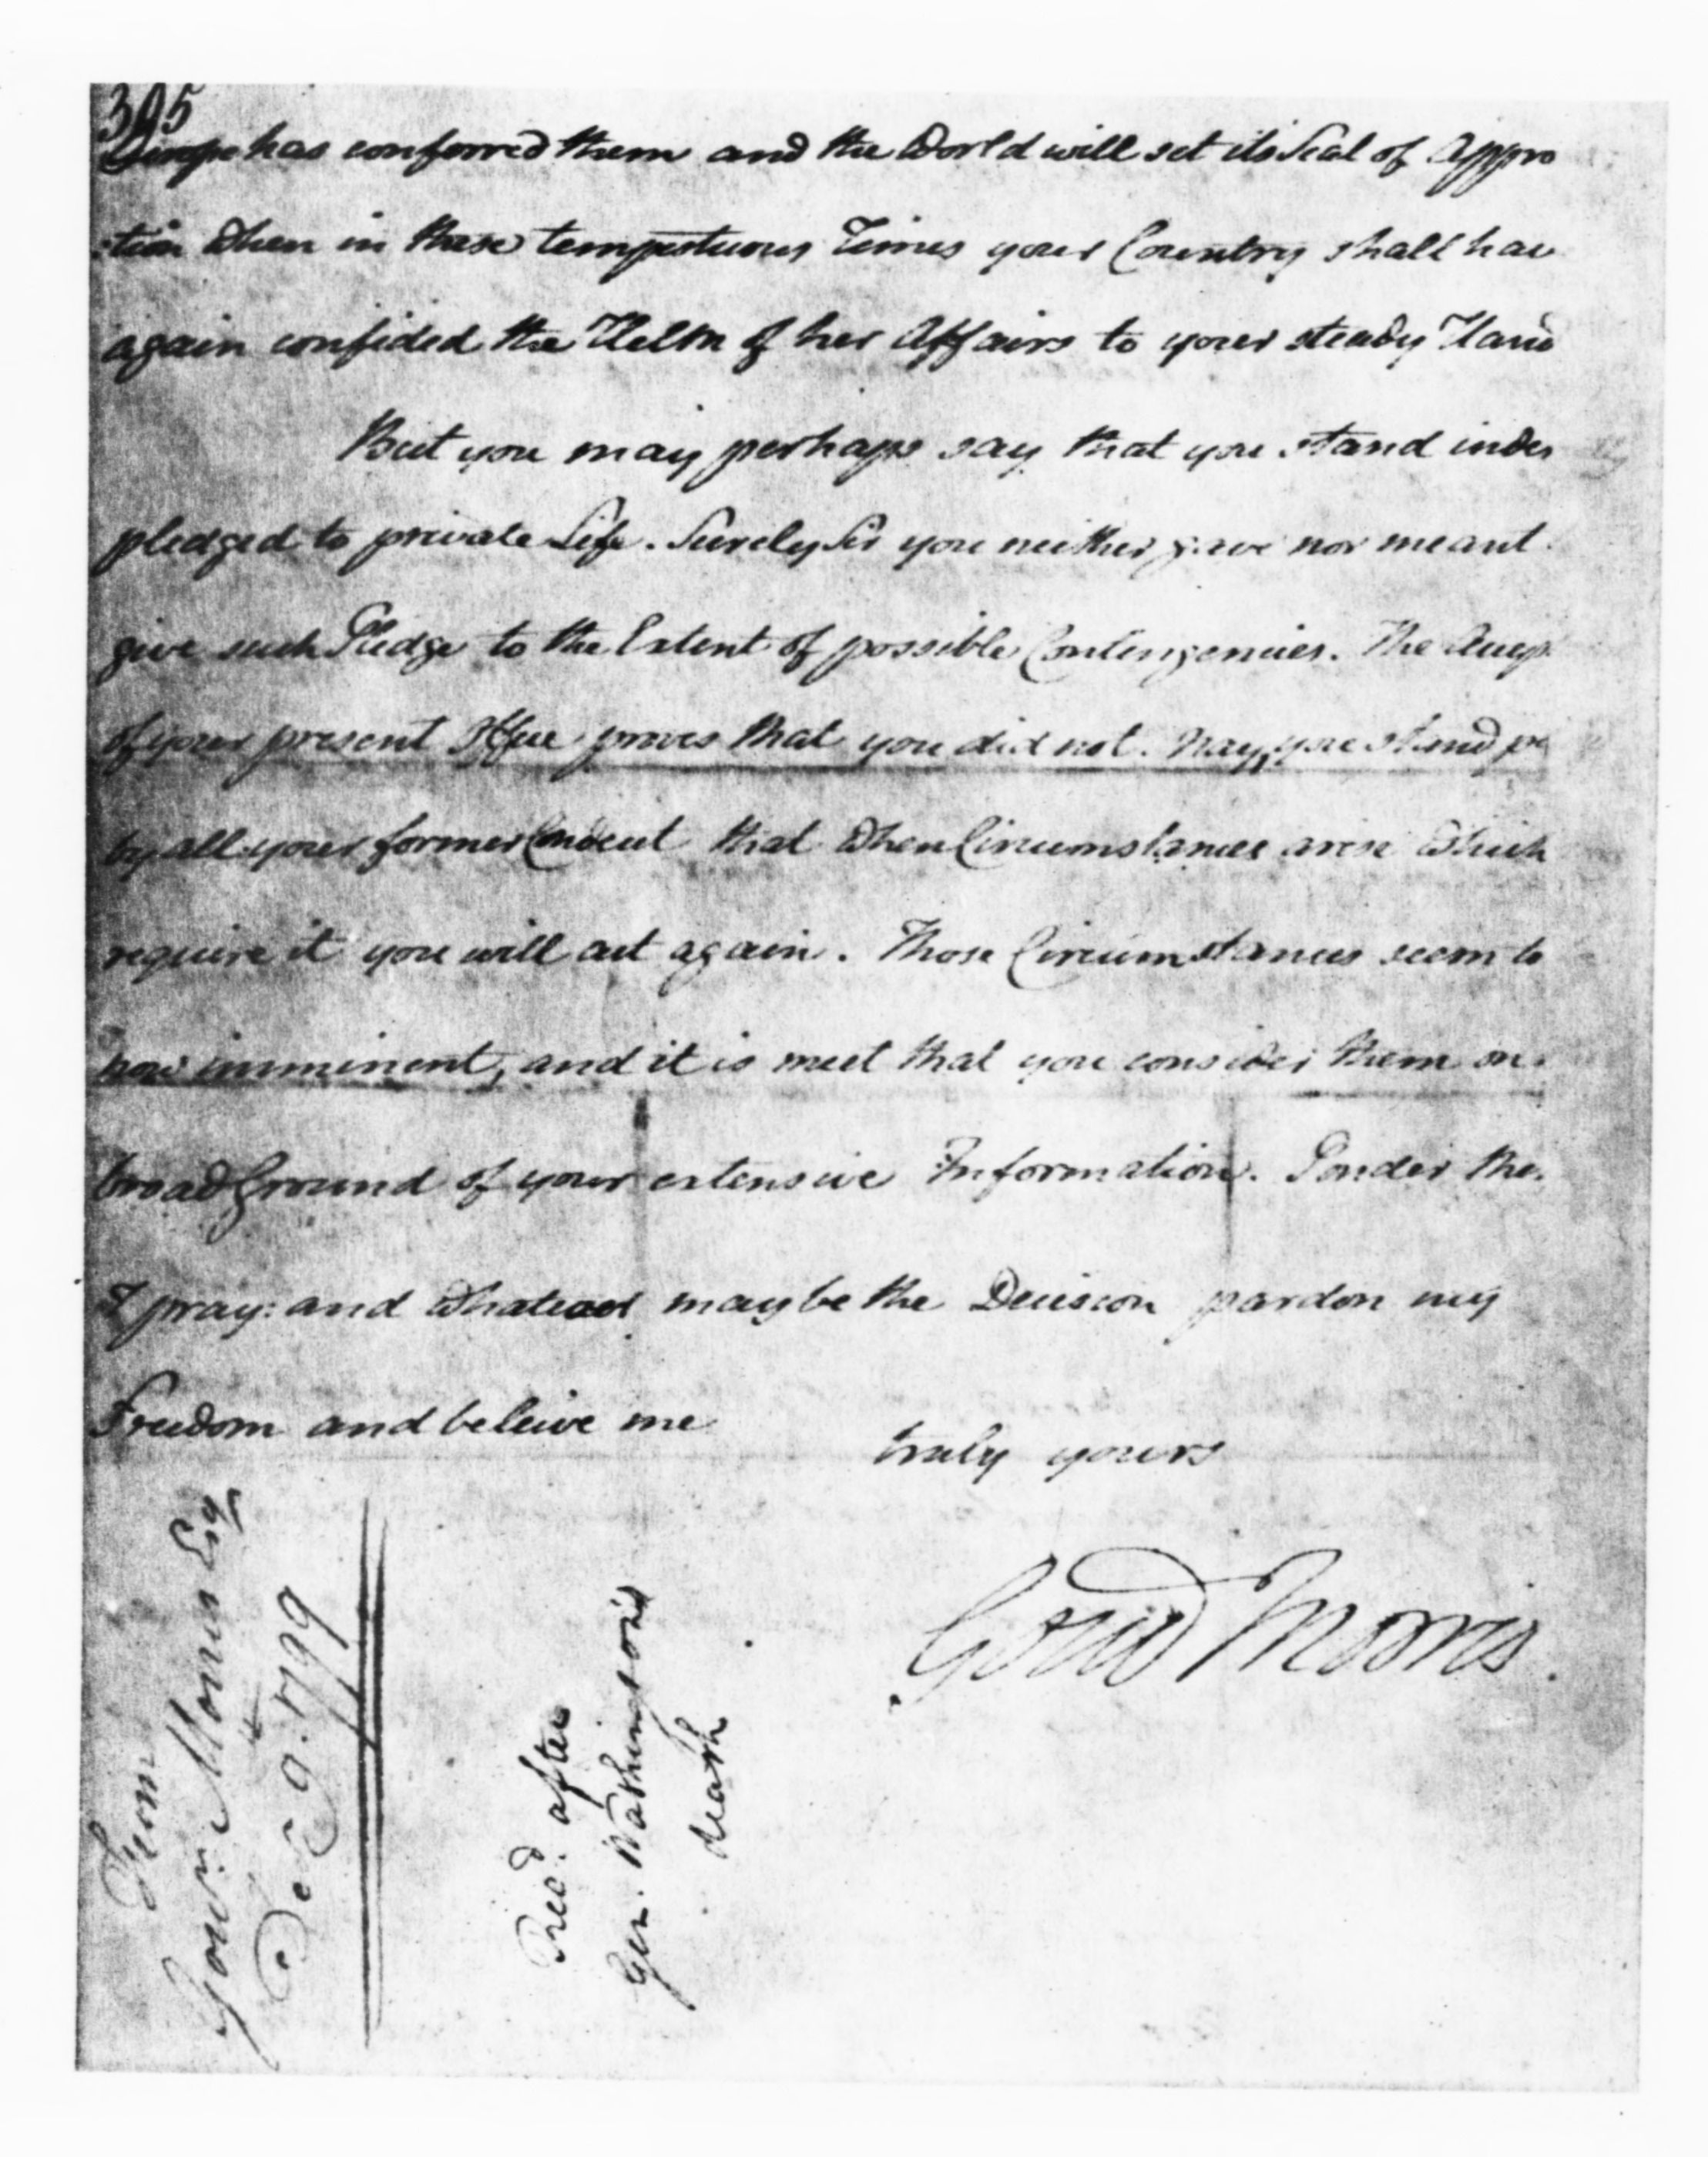 395
Europe has conferred them and the World will set its Seal of Appro
:tion When in these tempestuous Times your Country shall hav
again confided the Helm of her Affairs to your steady Hand
But you may perhaps say that you stand inder
pledged to private Life. Surely Sir you neither gave nor meant
give such Pledge to the Extent of possible Contingencies. The Accep
of your present Office proves that you did not. Nay, you stand pe
by all your former Conduct that When Circumstances arise Which
require it you will act again. Those Circumstances seem to
now imminent, and it is meet that you consider them on
broad Ground of your extensive Information. Ponder the
I pray: and Whatever may be the Decision pardon my
Freedom and beleive me
truly yours
Gouv Morris.
From
Gouvr. Morris Esq
Dec 9.th 1799
Recd. after
Gen. Washington's
death